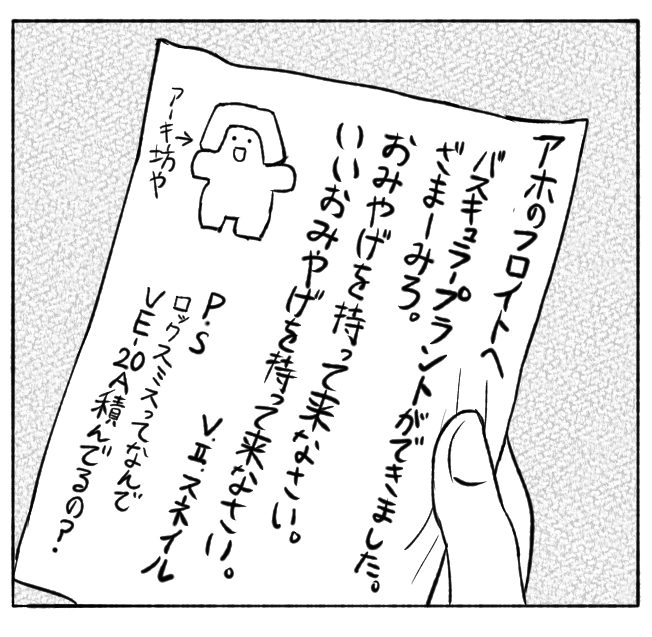 アホのフロイトへ
バスキュラープラントができました。
ざまーみろ。
おみやげを持って来なさい。
いいおみやげを持って来なさい。
V.Ⅱ.スネイル
P.S
ロックスミスってなんで
VE-20A積んでるの?
アーキ坊や→